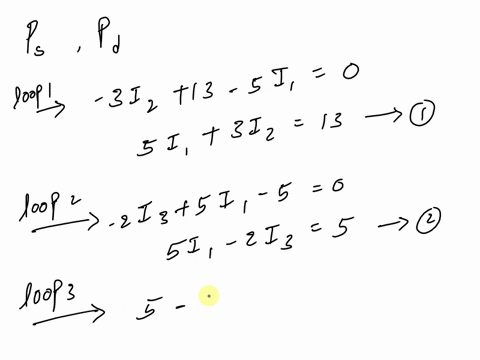 Ps , Pd
loop1 → -3I₂ + 13 - 5I₁ = 0
5I₁ + 3I₂ = 13 → ①
loop 2 → -2I₃ + 5I₁ - 5 = 0
5I₁ - 2I₃ = 5 → ②
loop3 → 5 -